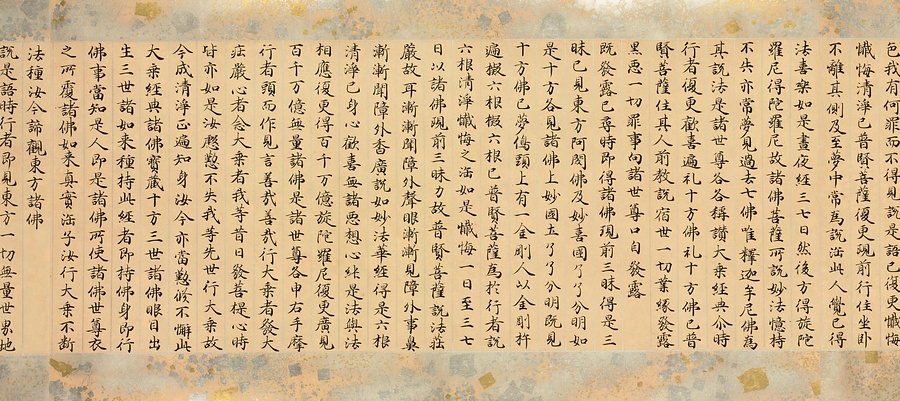 色我有何罪而不得見說是語已復更懺悔
懺悔清淨已普賢菩薩復更現前行住坐卧
不離其側乃至夢中常為說法此人覺已得
法喜樂如是晝夜經三七日然後方得旋陀
羅尼得陀羅尼故諸佛菩薩所說妙法憶持
不失亦常夢見過去七佛唯釋迦牟尼佛為
其說法是諸世尊各各稱讚大乘經典尒時
行者復更歡喜遍礼十方佛礼十方佛已普
賢菩薩住其人前教說宿世一切業緣發露
黑惡一切罪事向諸世尊口自發露
既發露已尋時即得諸佛現前三昧得是三
昧已見東方阿閦佛及妙喜國了了分明如
是十方各見諸佛上妙國土了了分明既見
十方佛已夢象頭上有一金剛人以金剛杵
遍擬六根擬六根已普賢菩薩為於行者說
六根清淨懺悔之法如是懺悔一日至三七
日以諸佛現前三昧力故普賢菩薩說法莊
嚴故耳漸漸聞障外聲眼漸漸見障外事鼻
漸漸聞障外香廣說如妙法華經得是六根
清淨已身心歡喜無諸惡想心純是法與法
相應復更得百千万億旋陀羅尼復更廣見
百千万億無量諸佛是諸世尊各申右手摩
行者頭而作是言善哉善哉行大乘者發大
莊嚴心者念大乘者我等昔日發菩提心時
皆亦如是汝慇懃不失我等先世行大乘故
今成清淨正遍知身汝今亦當懃修不懈此
大乘經典諸佛寶藏十方三世諸佛眼目出
生三世諸如來種持此經者即持佛身即行
佛事當知是人即是諸佛所使諸佛世尊衣
之所覆諸佛如來真實法子汝行大乘不斷
法種汝今諦觀東方諸佛
說是語時行者即見東方一切無量世界地